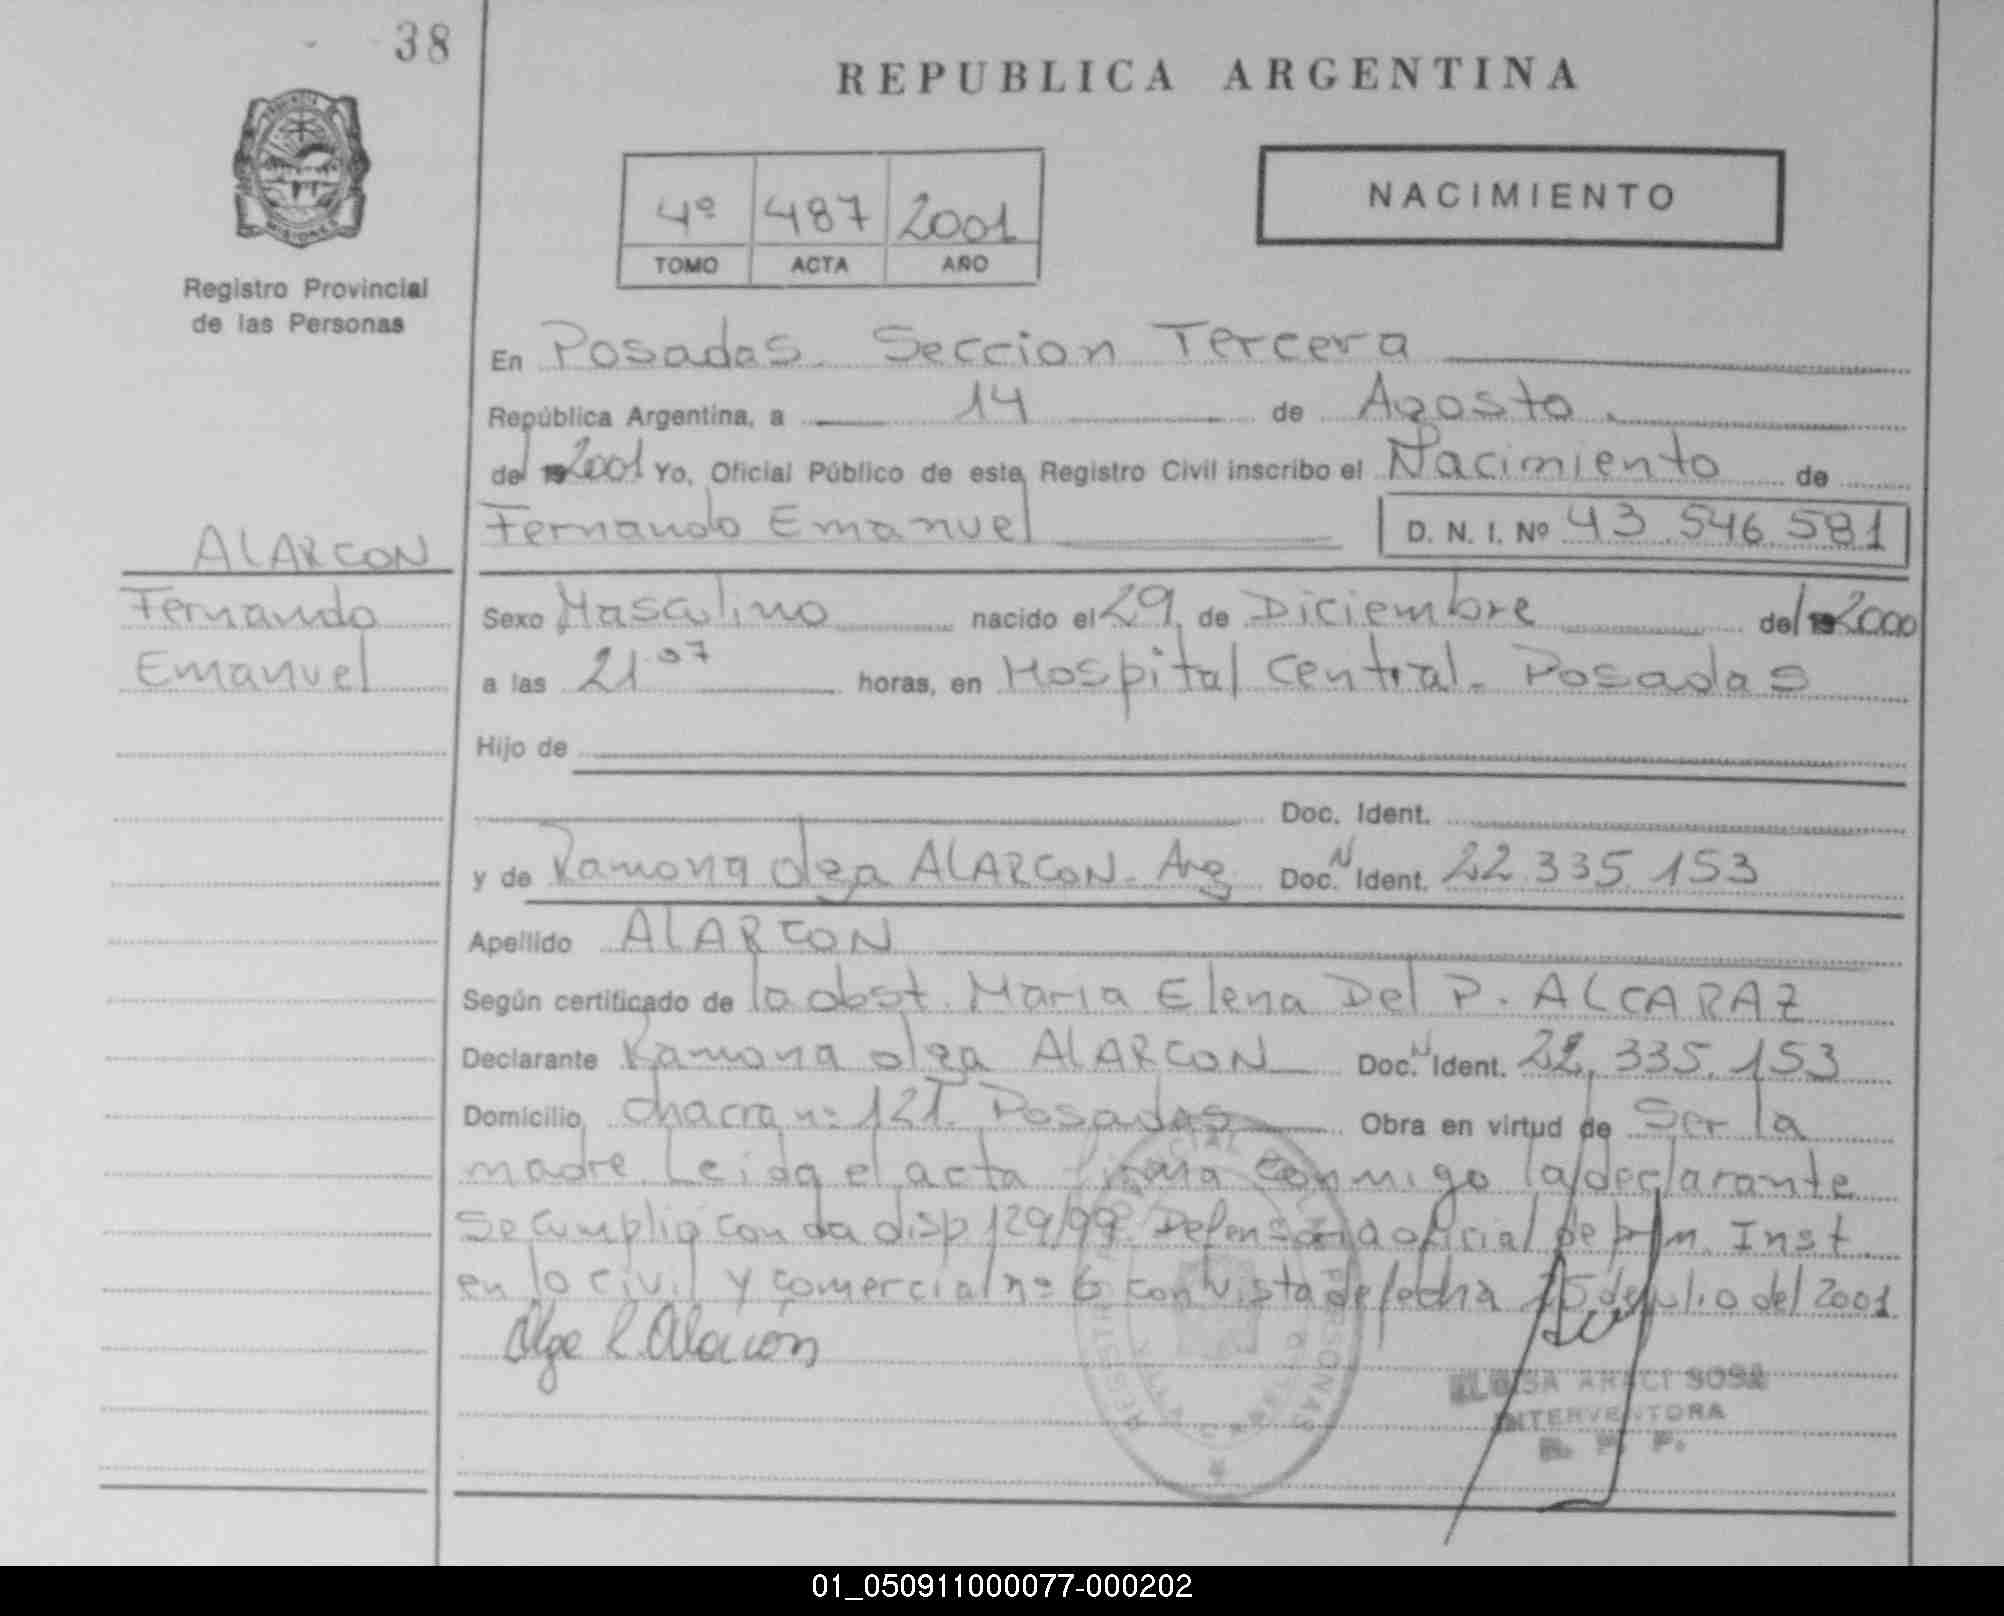 38
REPUBLICA ARGENTINA
NACIMIENTO
4º 487 2001
TOMO ACTA AÑO
MISIONES
Registro Provincial
de las Personas
En Posadas. Seccion Tercera
República Argentina, a 14 de Agosto
del 2001 Yo, Oficial Público de este Registro Civil inscribo el Nacimiento de
Fernando Emanuel D. N. I. Nº 43.546.581
ALARCON
Fernando
Emanuel
Sexo Masculino nacido el 29 de Diciembre del 2000
a las 21.07 horas, en Hospital Central. Posadas
Hijo de
Doc. Ident.
y de Ramona Olga ALARCON. Arg Doc. N Ident. 22.335.153
Apellido ALARCON
Según certificado de la obst. Maria Elena Del P. ALCARAZ
Declarante Ramona Olga ALARCON Doc. N Ident. 22.335.153
Domicilio Chacra nº 121. Posadas Obra en virtud de Ser la
madre. Leida el acta firma conmigo la declarante
Se cumplio con la disp 129/99 Defensoria oficial de Inst
en lo civil y comercial nº 6 con vista de fecha 25 de julio del 2001
Olga R. Alarcon
ELOISA ARACI SOSA
INTERVENTORA
R. P. P.
01_050911000077-000202